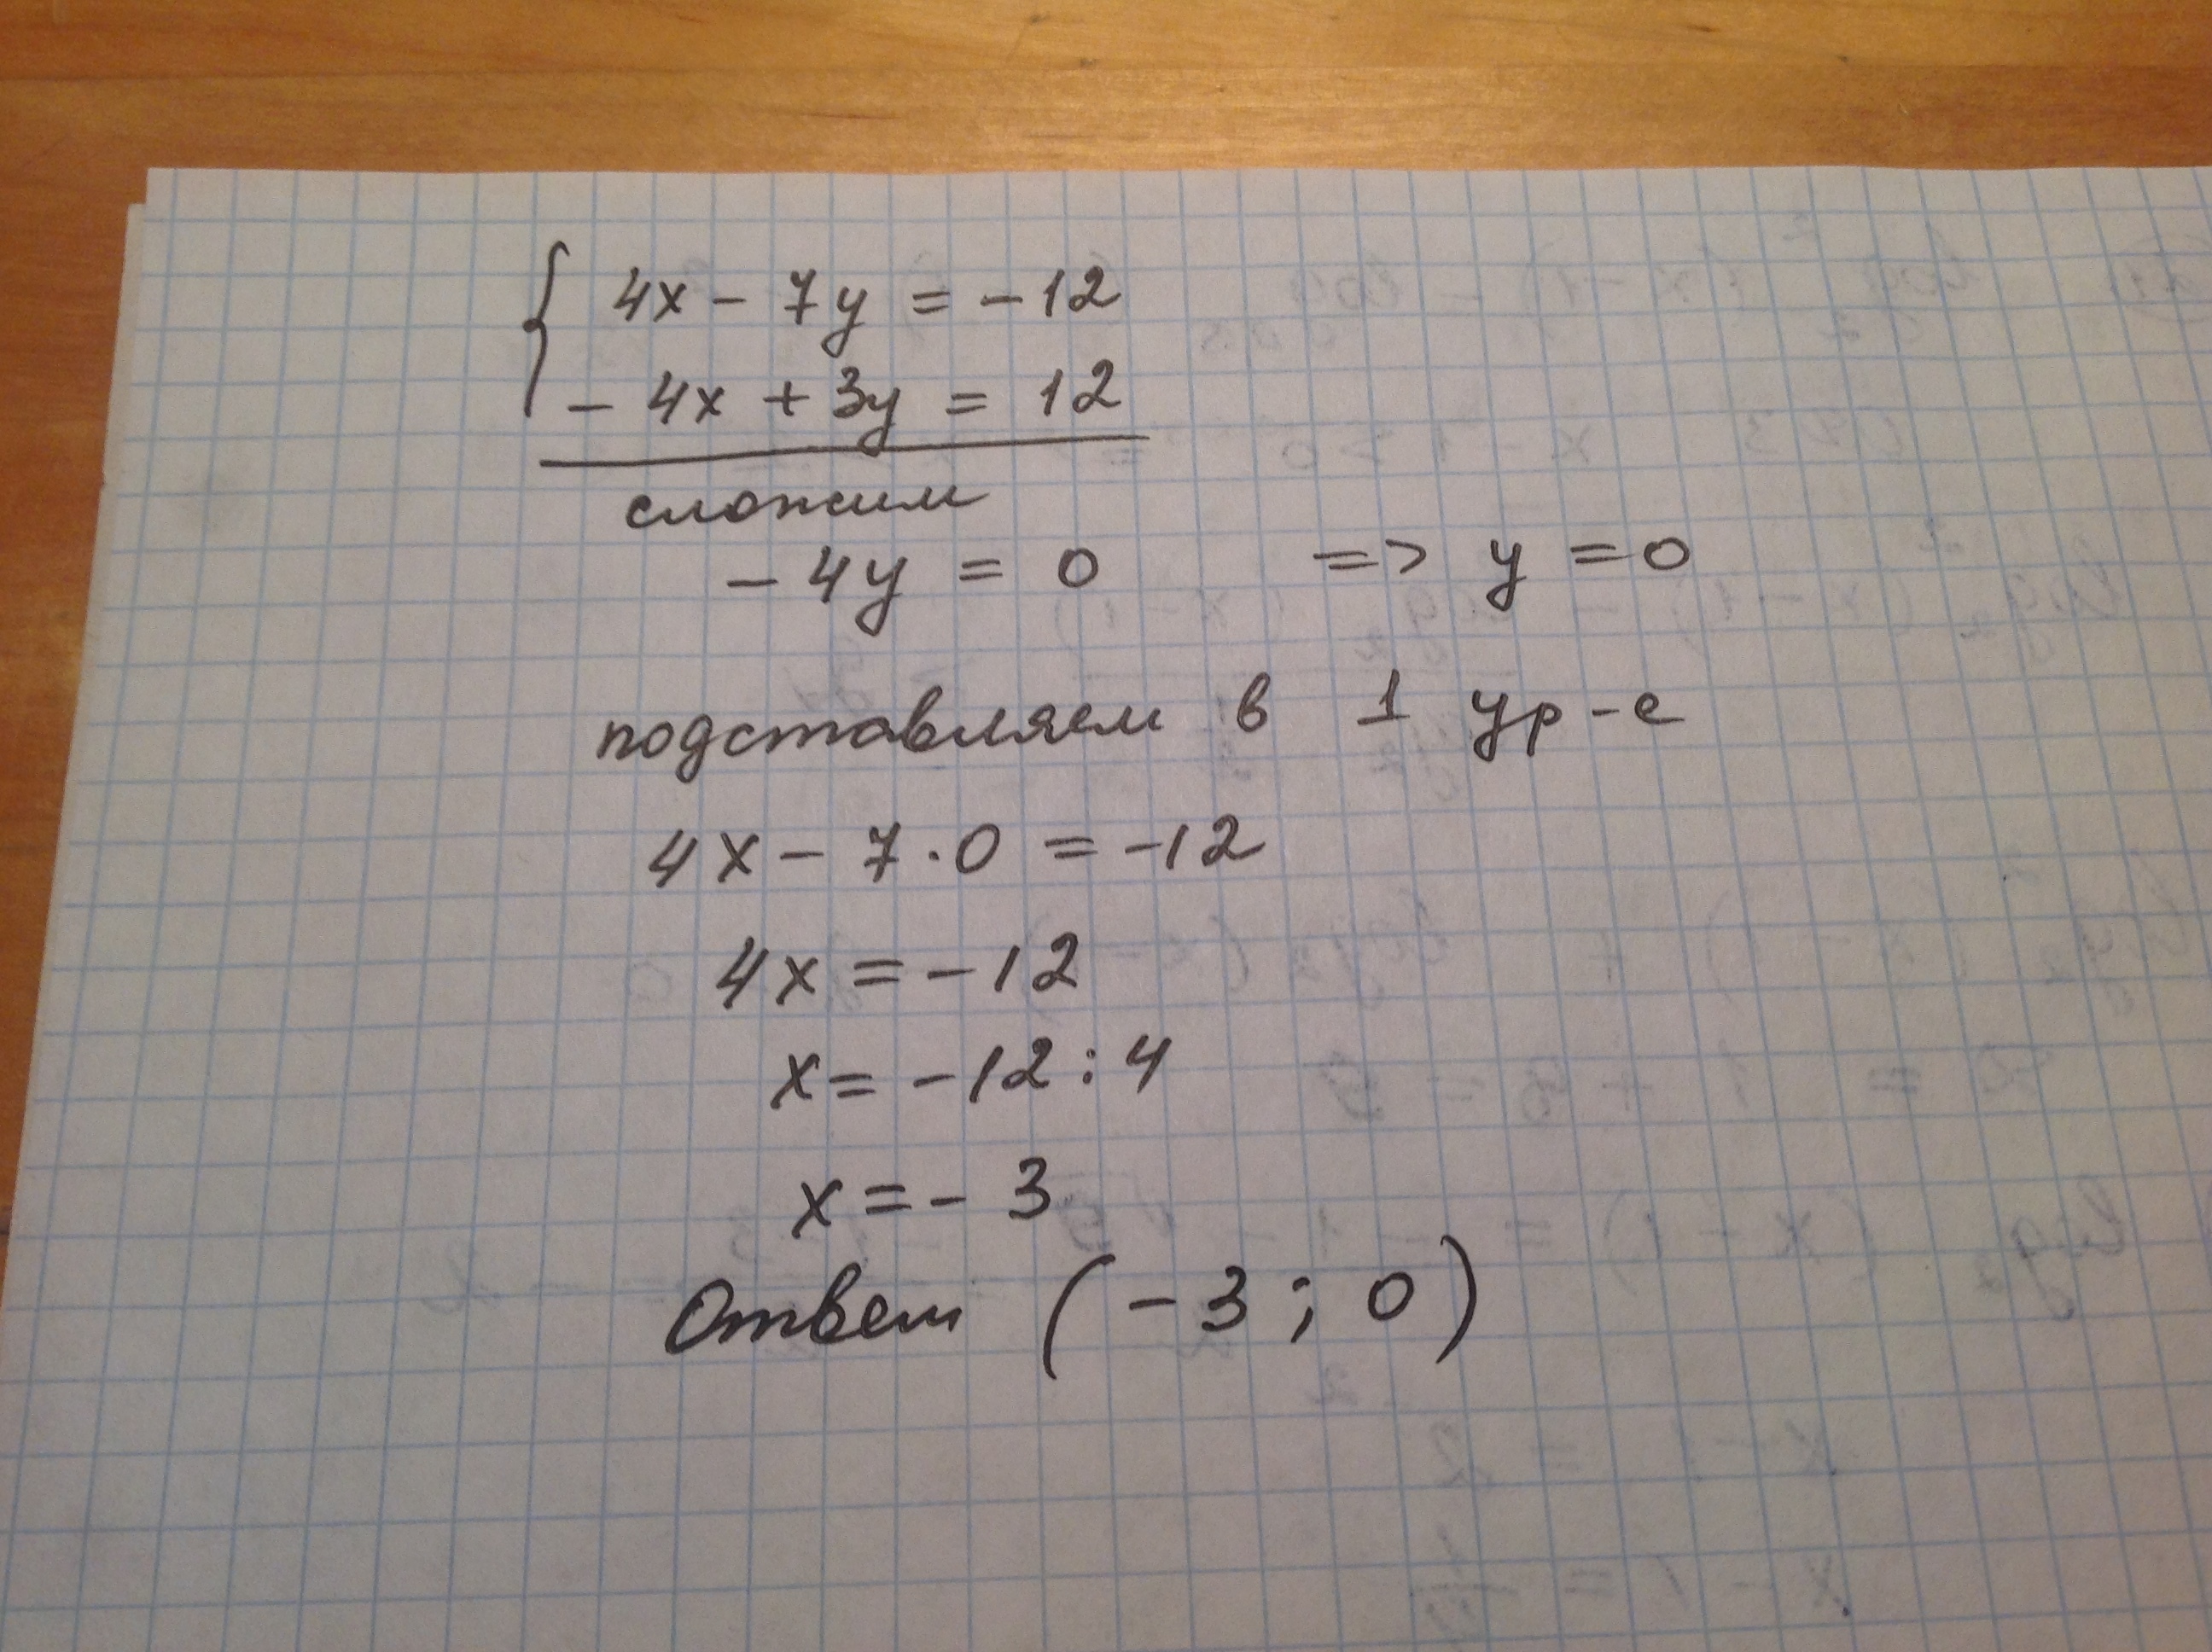 4x - 7y = -12
- 4x + 3y = 12
сложим
- 4y = 0 => y = 0
подставляем в 1 ур-е
4x - 7 · 0 = -12
4x = -12
x = -12 : 4
x = - 3
Ответ (-3; 0)